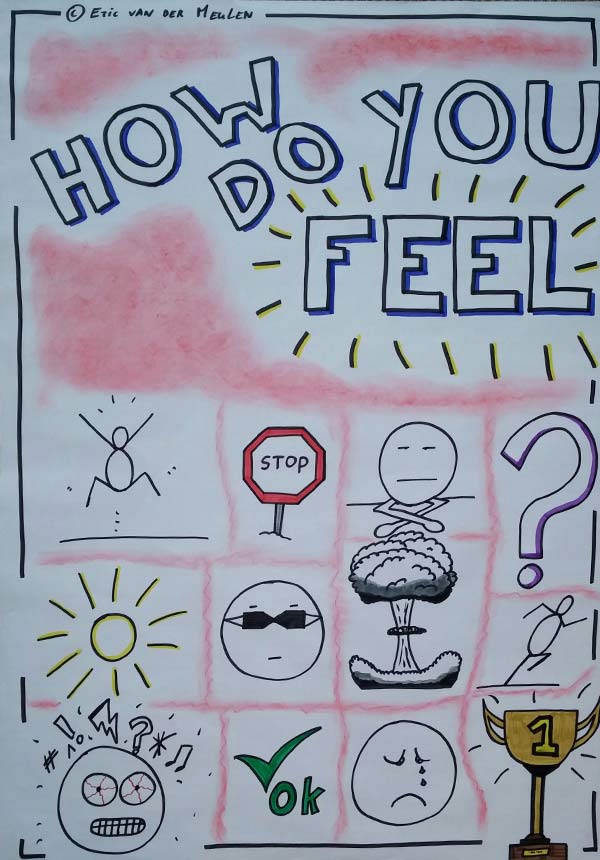 © Eric van der Meulen
HOW
DO
YOU
FEEL
STOP
?
#!?*♫
OK
1